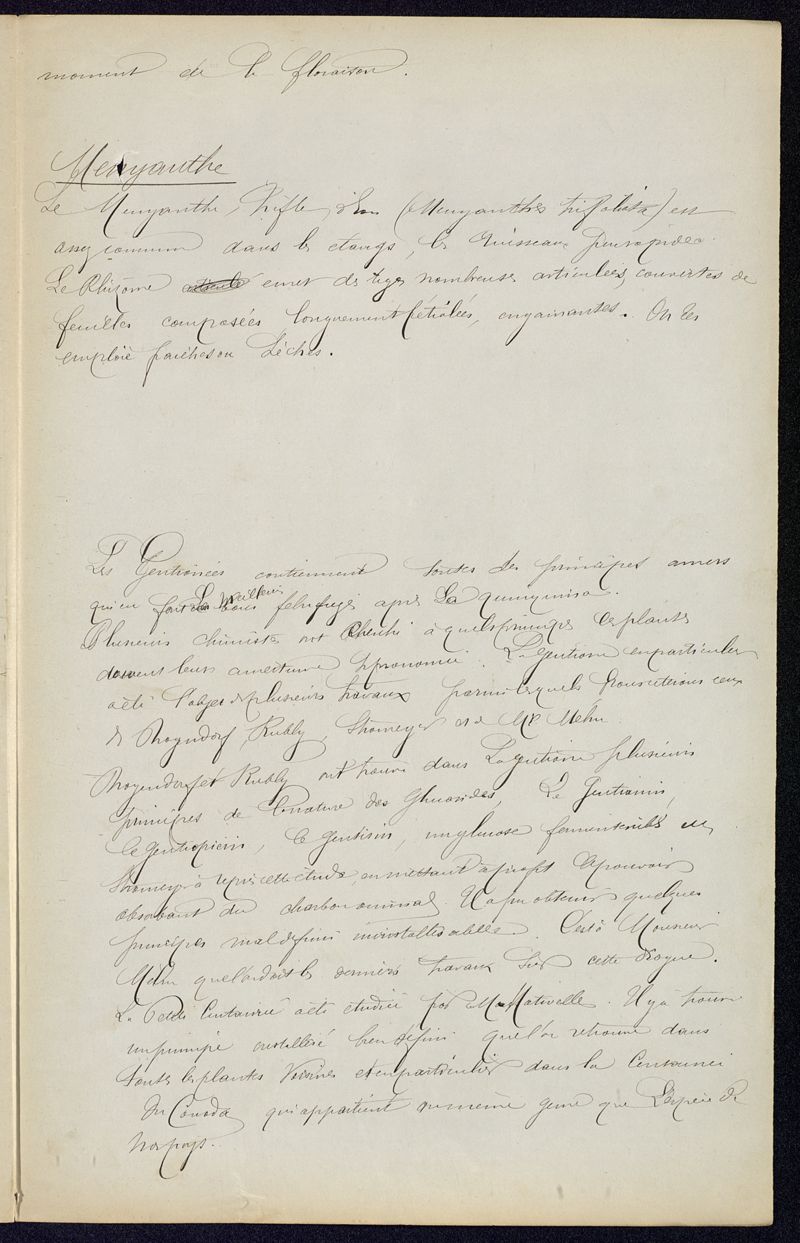 moment de la floraison.
Menyanthe
Le Menyanthe, Trifle d'Eau (Menyanthes trifoliata) est
assez commun dans les etangs, les Ruisseaux peu rapides.
Le Rhizome emet des tiges nombreuses articulées, couvertes de
feuilles composées longuement pétiolées, engainantes. On les
emploie fraiches ou sèches.
Les Gentianées contiennent toutes des principes amers
qui en font les meilleurs febrifuges après le quinquina.
Plusieurs chimistes ont cherché à quels principes ces plantes
devaient leurs amertume prononcée. La Gentiane en particulier
a été l'objet de plusieurs travaux parmi lesquels nous citerons ceux
de Rogendorf, Kubly, Stromeyer et de Mr Mehu.
Rogendorf et Kubly ont trouvé dans La gentiane plusieurs
principes de la nature des glucosides, Le Gentianin,
Le gentiopicrin, le gentisin, un glucose fermentescible et
Stromeyer à repris cette étude, en mettant à profit le pouvoir
absorbant du charbon animal. Il a pu obtenir quelques
principes mal définis incristallisables. C'est à Monsieur
Méhu que l'on doit les derniers travaux sur cette drogue.
La Petite Centaurée a été étudiée par Mr Nativelle. Il y a trouvé
un principe cristallisé bien défini que l'on retrouve dans
toutes les plantes voisines et en particulier dans la Centaurée
du Canada qui appartient au même genre que L'espèce de
nos pays.